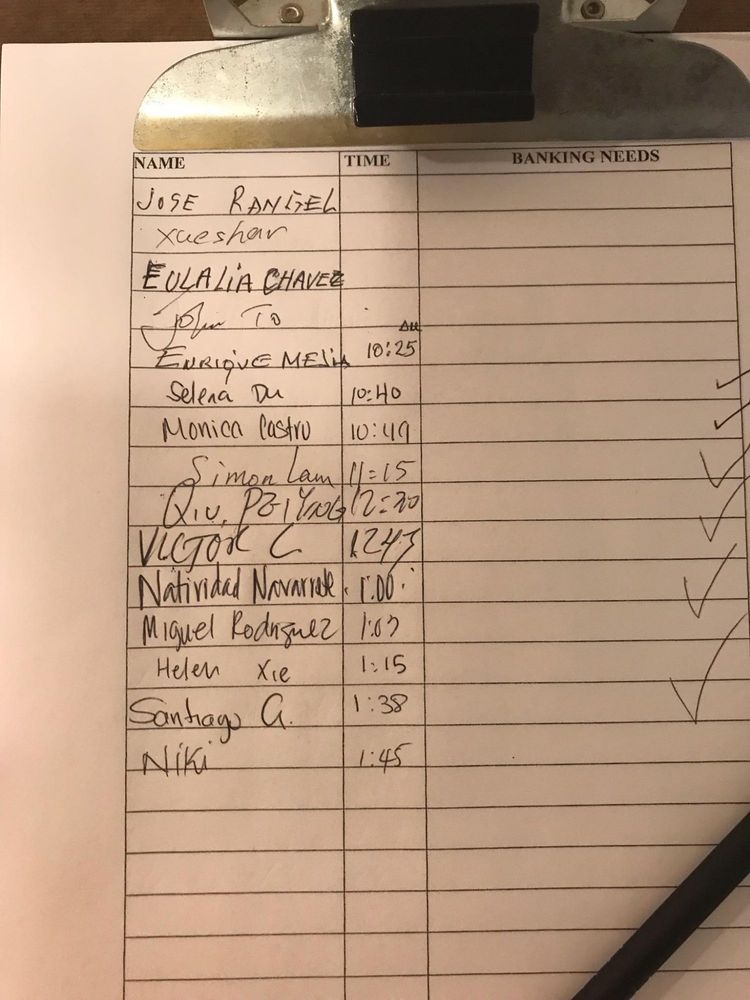 NAME TIME BANKING NEEDS
JOSE RANGEL
xueshan
EULALIA CHAVEZ
John To
ENRIQUE MEJIA 10:25 AM
Selena Du 10:40
Monica Castro 10:49
Simon Lam 11:15
QIU, 12:20
VICTOR C 1243
Natividad Navarrete 1:00
Miguel Rodriguez 1:03
Helen Xie 1:15
Santiago G. 1:38
Niki 1:45